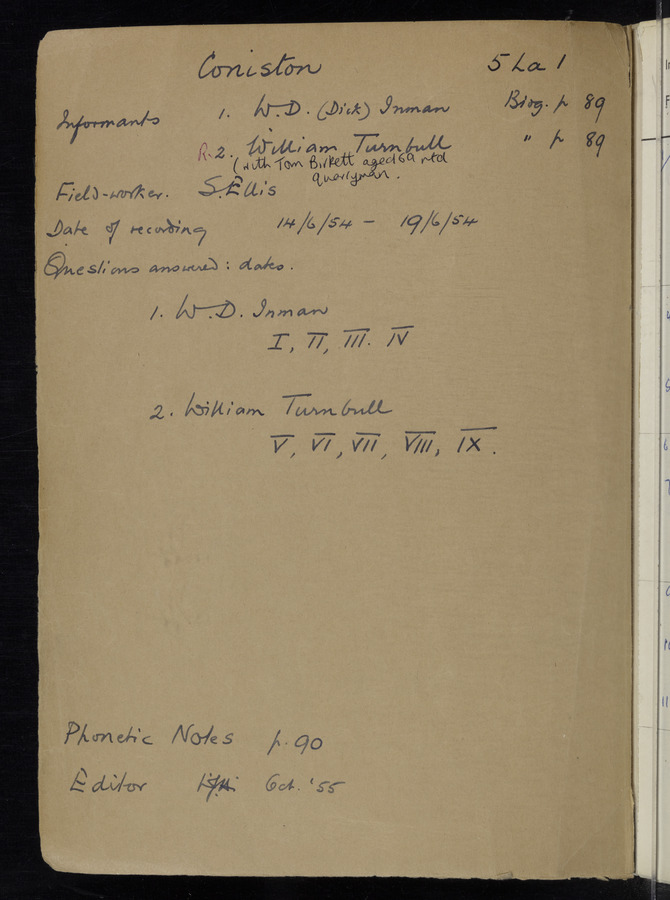 Coniston 5 La 1
Informants 1. W.D. (Dick) Inman Biog. p 89
R. 2. William Turnbull " p 89
(with Tom Birkett aged 69 retd
quarryman.
Field-worker. S. Ellis
Date of recording 14/6/54 - 19/6/54
Questions answered: dates.
1. W.D. Inman
I, II, III. IV
2. William Turnbull
V, VI, VII, VIII, IX.
Phonetic Notes p. 90
Editor Oct. '55